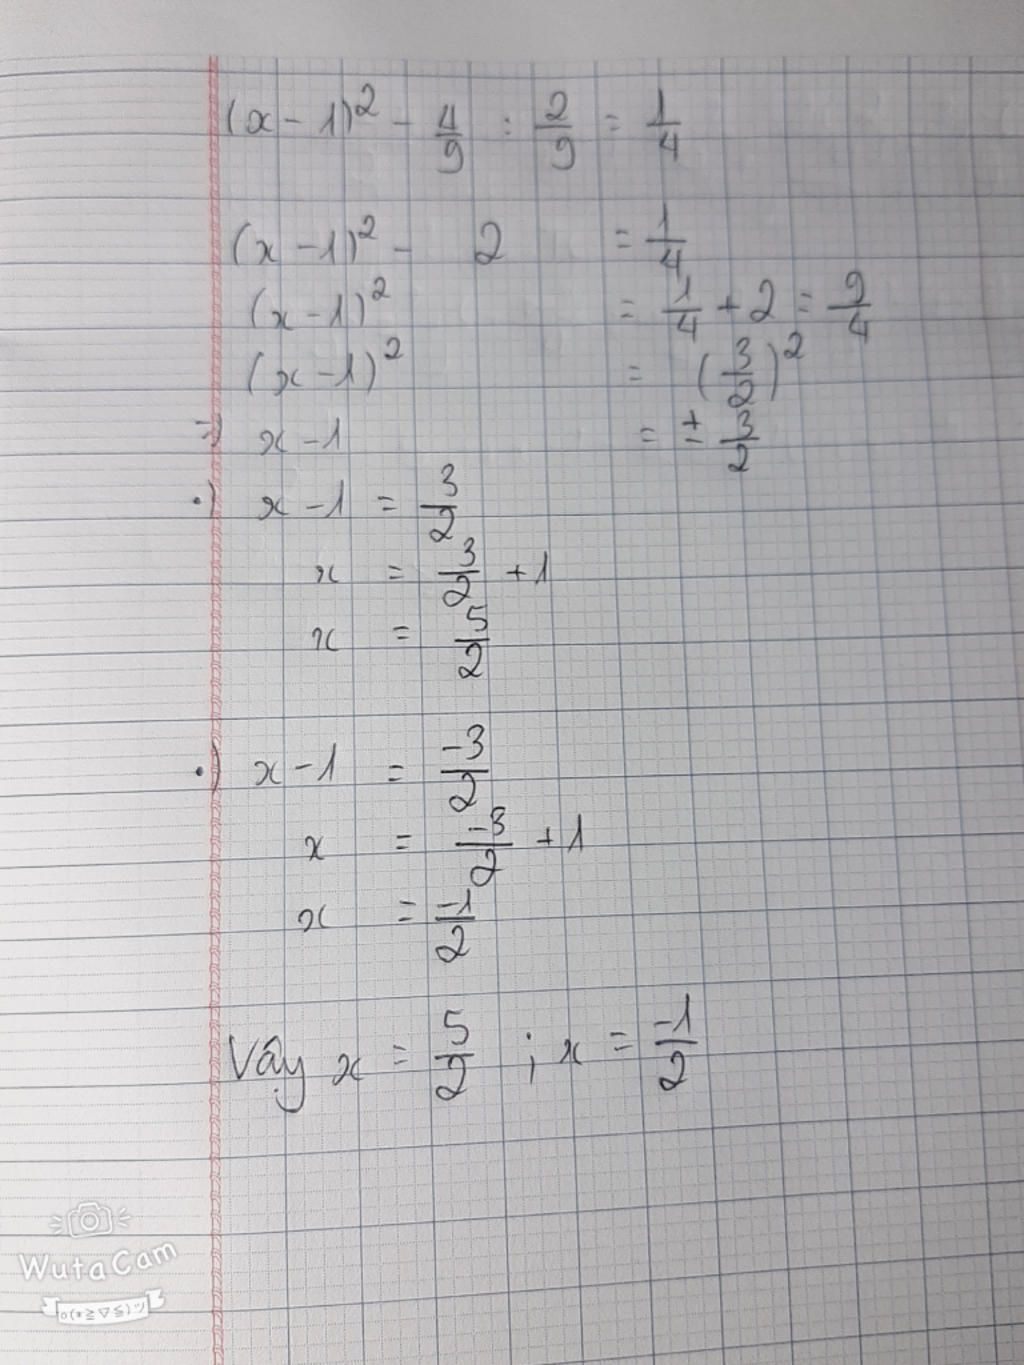 (x - 1)² - 4/9 : 2/9 = 1/4
(x - 1)² - 2 = 1/4
(x - 1)² = 1/4 + 2 = 9/4
(x - 1)² = (3/2)²
=> x - 1 = ± 3/2
·) x - 1 = 3/2
x = 3/2 + 1
x = 5/2
·) x - 1 = -3/2
x = -3/2 + 1
x = -1/2
Vậy x = 5/2 ; x = -1/2
WutaCam
o(*≧▽≦)ツ